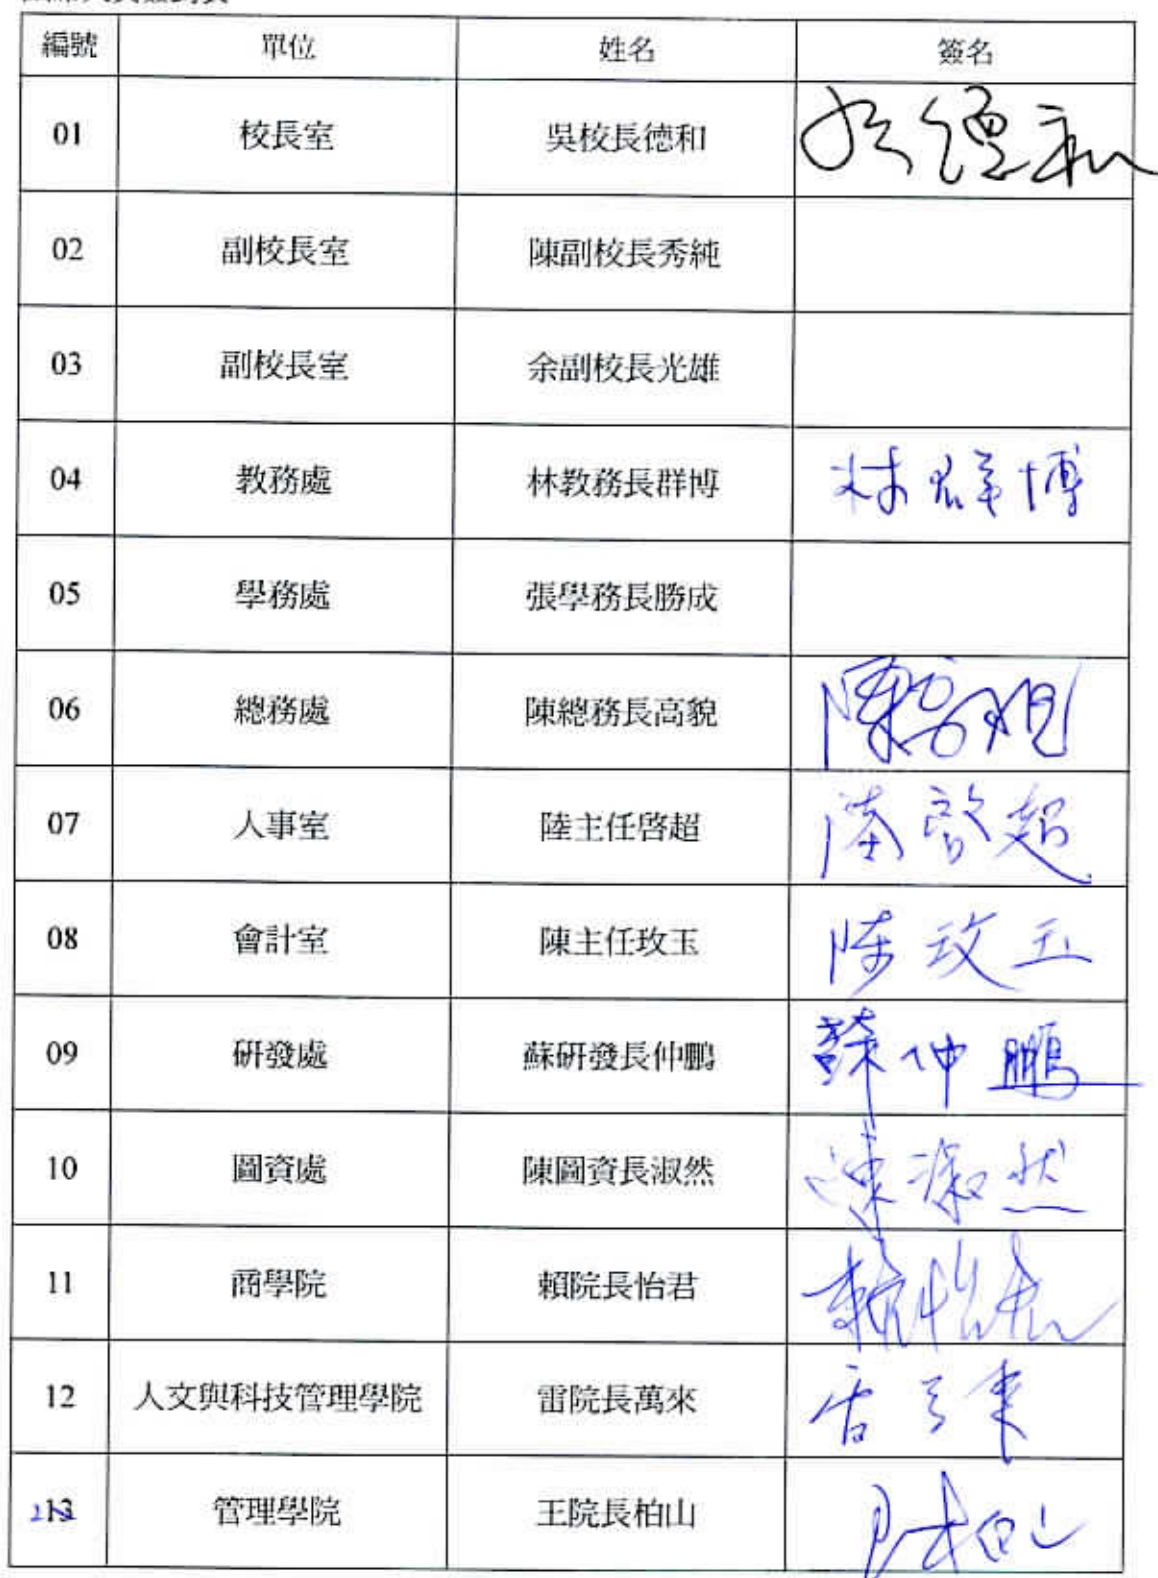 編號 單位 姓名 簽名
01 校長室 吳校長德和
02 副校長室 陳副校長秀純
03 副校長室 余副校長光雄
04 教務處 林教務長群博 林群博
05 學務處 張學務長勝成
06 總務處 陳總務長高貌
07 人事室 陸主任啓超 陸啓超
08 會計室 陳主任玫玉 陈玫玉
09 研發處 蘇研發長仲鵬 蘇仲鵬
10 圖資處 陳圖資長淑然 陳淑然
11 商學院 賴院長怡君 賴怡君
12 人文與科技管理學院 雷院長萬來
13 管理學院 王院長柏山